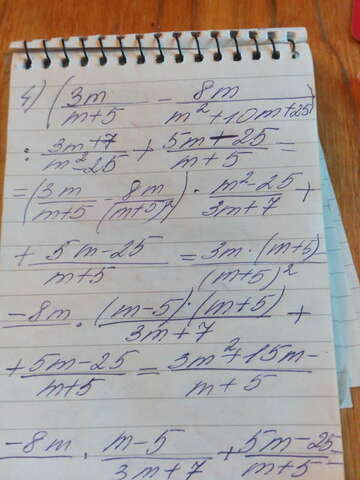 4) (3m/(m+5) - 8m/(m²+10m+25))
: (3m+7)/(m²-25) + (5m-25)/(m+5) =
= (3m/(m+5) - 8m/(m+5)²) · (m²-25)/(3m+7) +
+ (5m-25)/(m+5) = (3m·(m+5)
-8m)/(m+5)² · ((m-5)·(m+5))/(3m+7) +
+ (5m-25)/(m+5) = (3m²+15m-
-8m)/(m+5) · (m-5)/(3m+7) + (5m-25)/(m+5) =